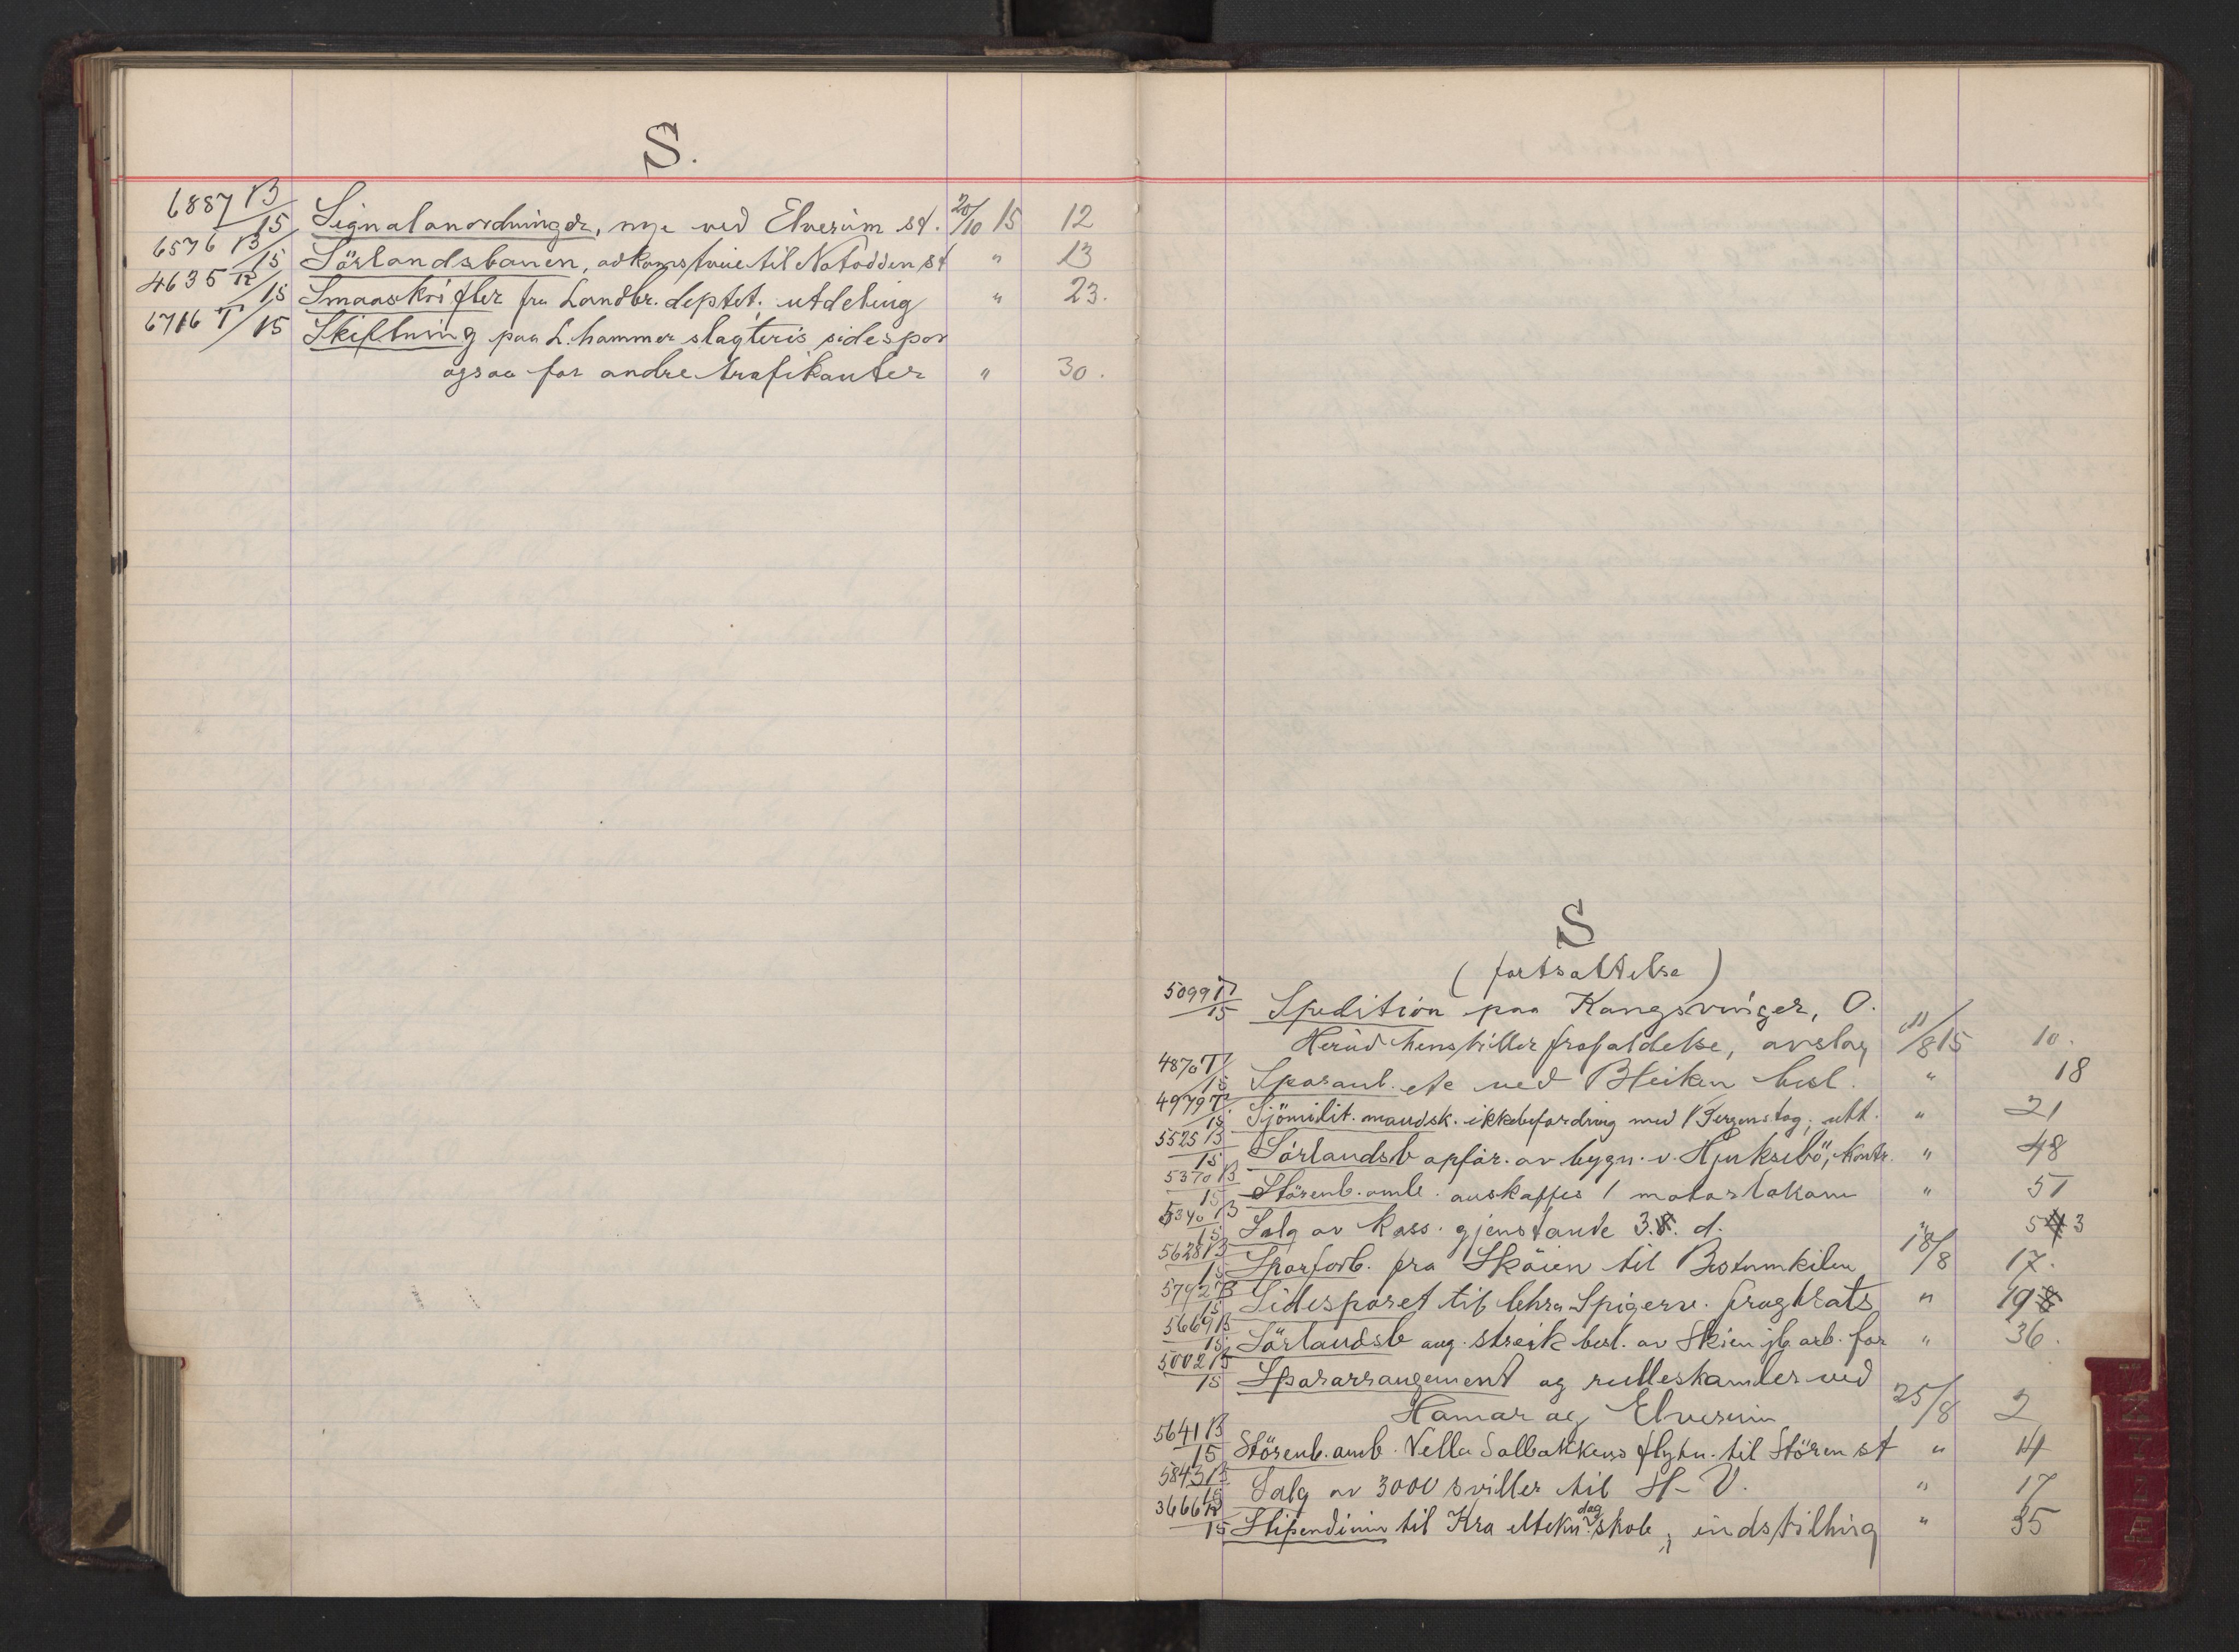 S.
6887 B/15 Signalanordninger, nye ved Elverum st. 20/10 15 12
6576 B/15 Sörlandsbanen, adkomstveie til Notodden st " 13
4635 R/15 Smaaskrifter fra Landbr. deptet. utdeling " 23.
6716 T/15 Skiftning paa L.hammer slagteris sidespor
ogsaa for andre trafikanter " 30.
S
(fortsættelse)
5099 T/15 Spedition paa Kongsvinger, O.
Herud henstiller frafaldelse, avslag 11/8 15 10.
4870 T/15 Sporanl. etc ved Bleiken besl. " 18
4979 T/15 Sjömilit. mandsk. ikkebefordring med Bergenstog; utt. " 21
5525 B/15 Sörlandsb opför. av bygn. v. Hjuksebö, kontr. " 48
5370 B/15 Störenb. omb. anskaffes 1 motorlokom " 51
5340 B/15 Salg av kass. gjenstande 3. d. " 53
5628 B/15 Sporforb. fra Sköien til Bestumkilen 18/8 17.
5792 B/15 Sidesporet til Chra Spigerv. fragtsats " 19
5669 B/15 Sörlandsb ang. streik besl. av Skien jb. arb. for " 36.
5002 B/15 Spararrangement og rulleskamler ved
Hamar og Elverum 25/8 2
5641 B/15 Störenb. omb. Vella Salbakkens flytn. til Stören st " 14
5843 B/15 Salg av 3000 sviller til H-V. " 17
3666 R/15 Stipendium til Kra eltekn. dagskole, indstilling " 35